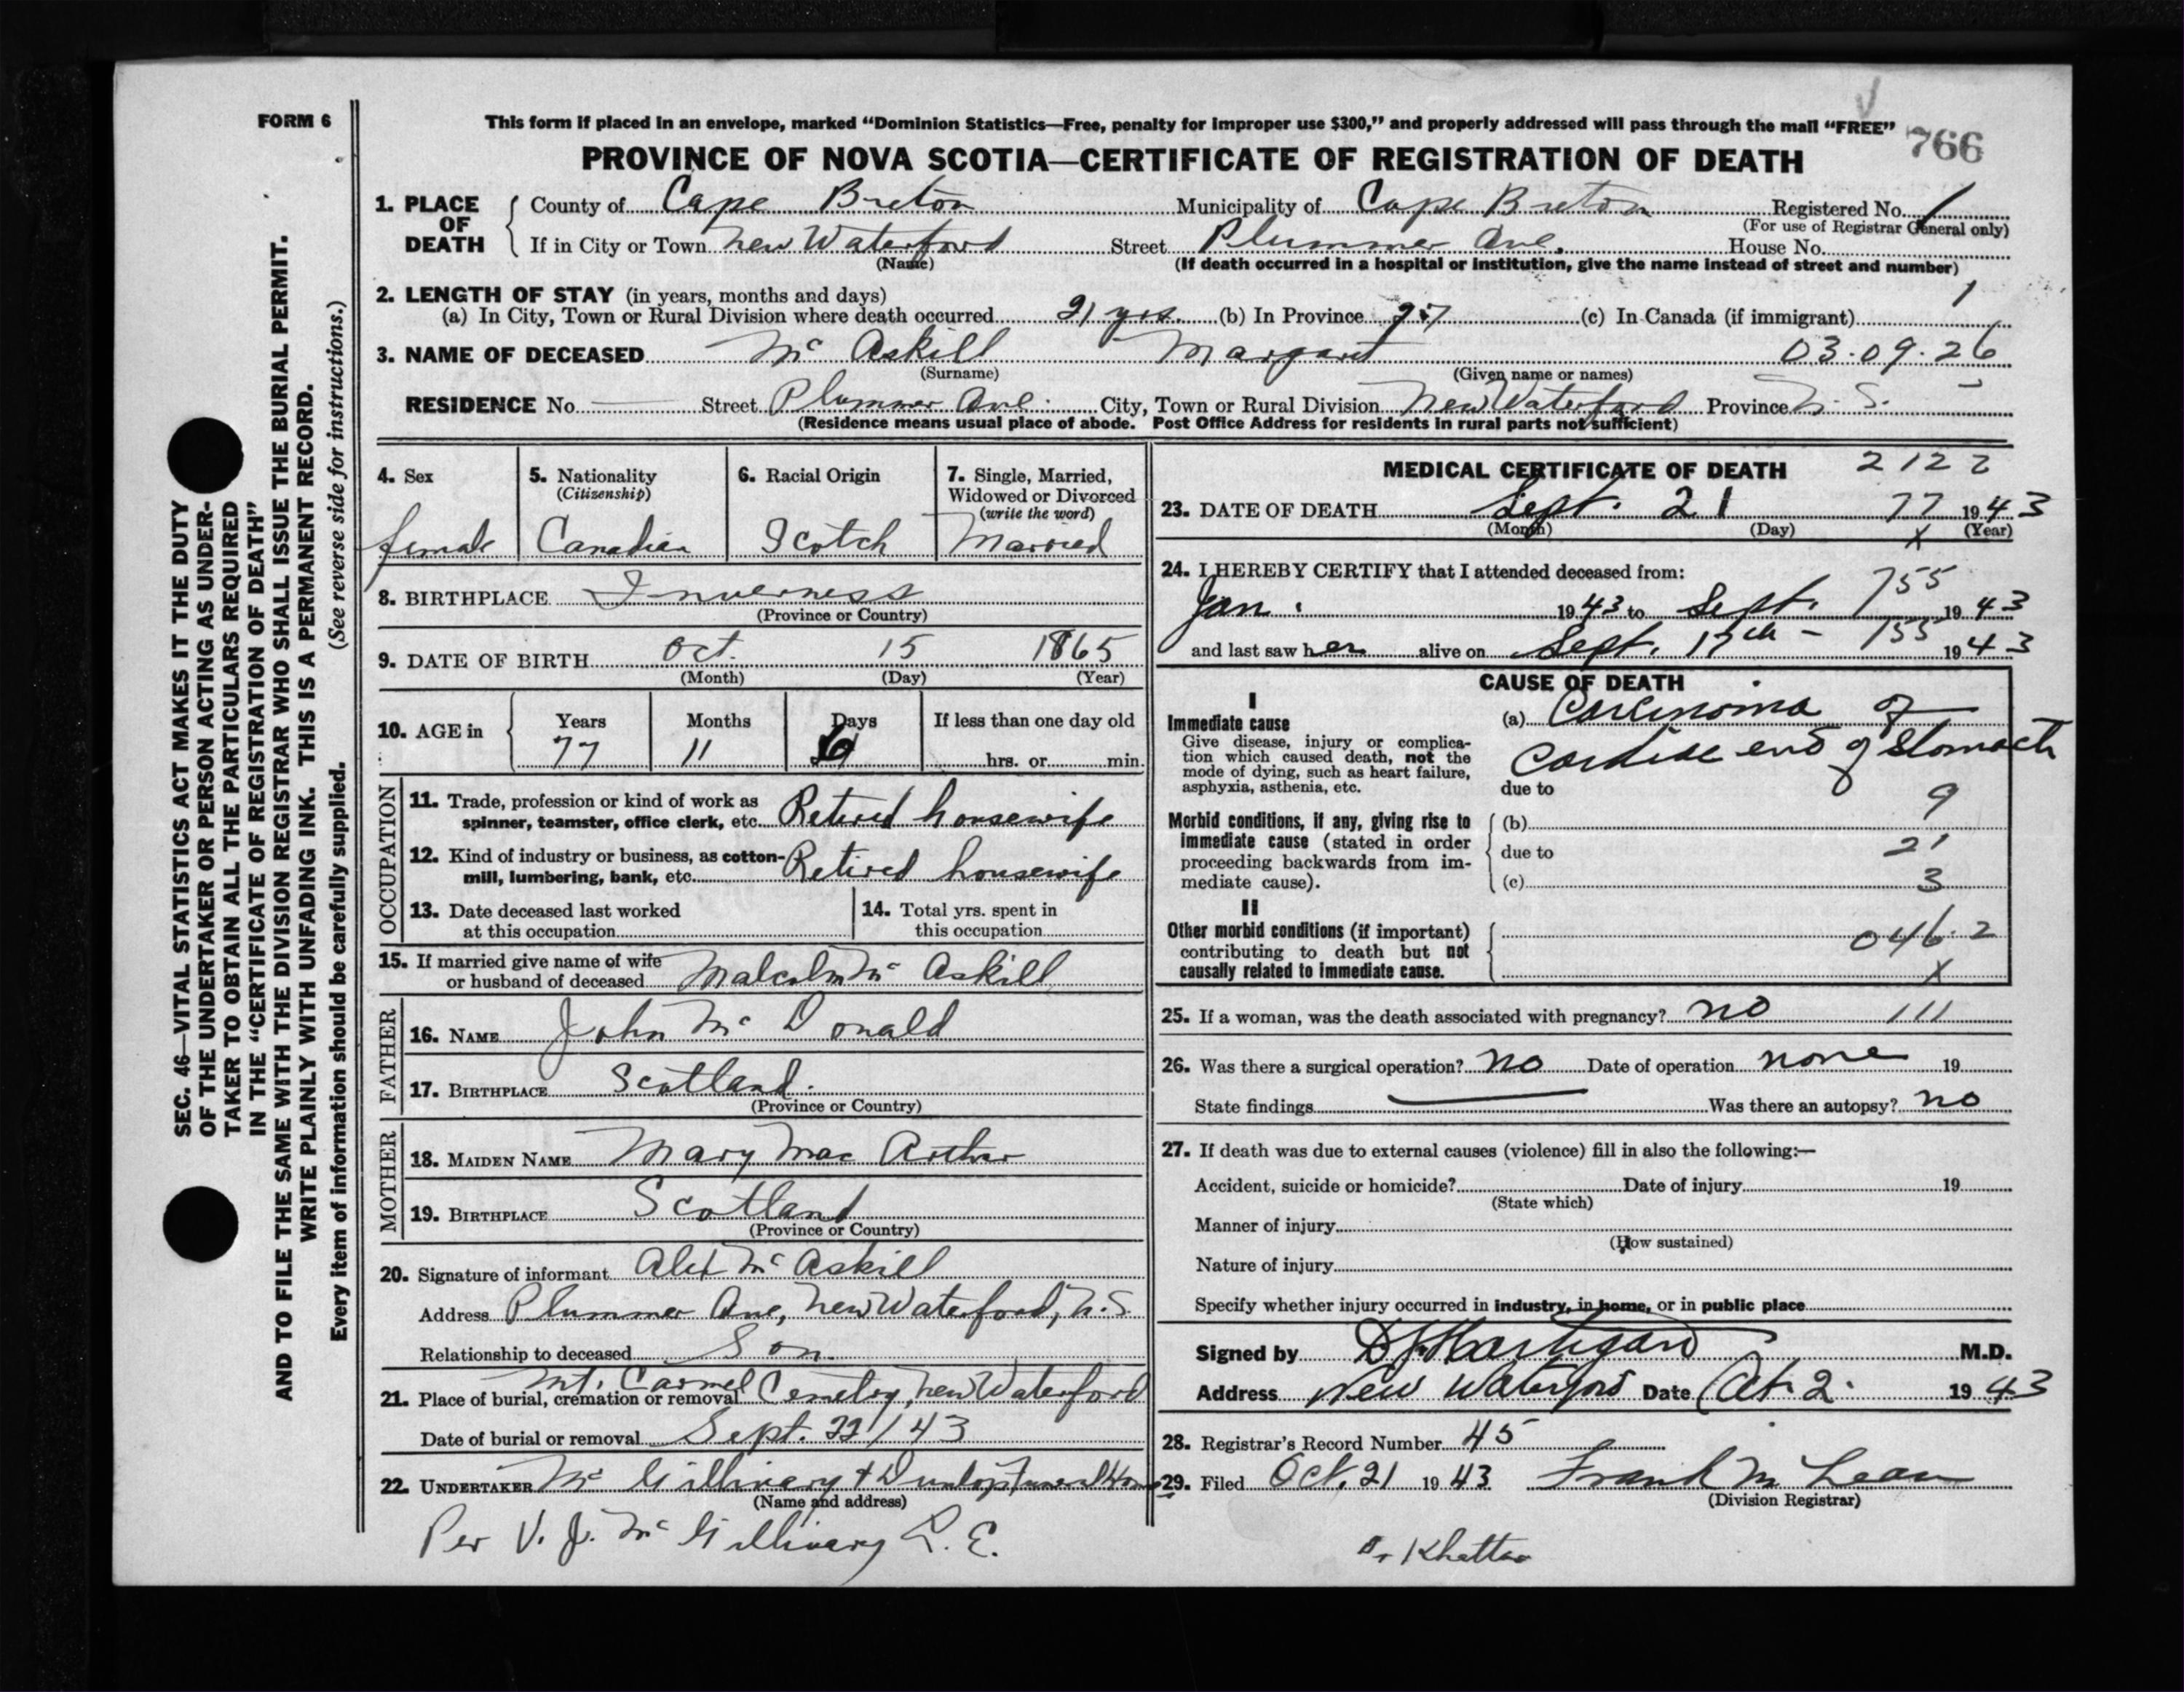 FORM 6
This form if placed in an envelope, marked “Dominion Statistics—Free, penalty for improper use $300,” and properly addressed will pass through the mail “FREE”
766
PROVINCE OF NOVA SCOTIA—CERTIFICATE OF REGISTRATION OF DEATH
1. PLACE OF DEATH
County of Cape Breton Municipality of Cape Breton Registered No. 1
(For use of Registrar General only)
If in City or Town New Waterford Street Plummer Ave. House No.
(Name)
(If death occurred in a hospital or institution, give the name instead of street and number)
2. LENGTH OF STAY (in years, months and days) 1
(a) In City, Town or Rural Division where death occurred 21 yrs. (b) In Province (c) In Canada (if immigrant)
3. NAME OF DECEASED Mc Askill Margaret 03.09.26
(Surname) (Given name or names)
RESIDENCE No. — Street Plummer Ave. City, Town or Rural Division New Waterford Province N. S.
(Residence means usual place of abode. Post Office Address for residents in rural parts not sufficient)
4. Sex
female
5. Nationality
(Citizenship)
Canadian
6. Racial Origin
Scotch
7. Single, Married,
Widowed or Divorced
(write the word)
Married
8. BIRTHPLACE Inverness
(Province or Country)
9. DATE OF BIRTH Oct. 15 1865
(Month) (Day) (Year)
10. AGE in
Years Months Days If less than one day old
77 11 6 hrs. or min.
OCCUPATION
11. Trade, profession or kind of work as
spinner, teamster, office clerk, etc. Retired housewife
12. Kind of industry or business, as cotton-
mill, lumbering, bank, etc. Retired housewife
13. Date deceased last worked
at this occupation
14. Total yrs. spent in
this occupation
15. If married give name of wife
or husband of deceased Malcolm Mc Askill
FATHER
16. NAME John Mc Donald
17. BIRTHPLACE Scotland.
(Province or Country)
MOTHER
18. MAIDEN NAME Mary Mac Arthur
19. BIRTHPLACE Scotland
(Province or Country)
20. Signature of informant Alex Mc Askill
Address Plummer Ave, New Waterford, N.S.
Relationship to deceased Son.
21. Place of burial, cremation or removal Mt. Carmel Cemetry, New Waterford
Date of burial or removal Sept. 22/43
22. UNDERTAKER Mc Gillivary + Dunlop Funeral Home
(Name and address)
Per V. J. Mc Gillivary L. E.
MEDICAL CERTIFICATE OF DEATH 2122
23. DATE OF DEATH Sept. 21 77 1943
(Month) (Day) X (Year)
24. I HEREBY CERTIFY that I attended deceased from:
Jan. 1943 to Sept. 155 1943
and last saw her alive on Sept. 17th - 155 1943
CAUSE OF DEATH
I
Immediate cause
Give disease, injury or complica-
tion which caused death, not the
mode of dying, such as heart failure,
asphyxia, asthenia, etc.
(a) Carcinoma of
cardiac end of stomach
due to
9
Morbid conditions, if any, giving rise to
immediate cause (stated in order
proceeding backwards from im-
mediate cause).
(b)
due to 21
(c) 3
II
Other morbid conditions (if important)
contributing to death but not
causally related to immediate cause.
046.2
X
25. If a woman, was the death associated with pregnancy? no 111
26. Was there a surgical operation? no Date of operation none 19
State findings — Was there an autopsy? no
27. If death was due to external causes (violence) fill in also the following:—
Accident, suicide or homicide? Date of injury 19
(State which)
Manner of injury
(How sustained)
Nature of injury
Specify whether injury occurred in industry, in home, or in public place
Signed by D J Hartigan M.D.
Address New Waterford Date Oct. 2. 1943
28. Registrar's Record Number 45
29. Filed Oct. 21 1943 Frank McLean
(Division Registrar)
Dr Khattar
SEC. 46—VITAL STATISTICS ACT MAKES IT THE DUTY
OF THE UNDERTAKER OR PERSON ACTING AS UNDER-
TAKER TO OBTAIN ALL THE PARTICULARS REQUIRED
IN THE “CERTIFICATE OF REGISTRATION OF DEATH”
AND TO FILE THE SAME WITH THE DIVISION REGISTRAR WHO SHALL ISSUE THE BURIAL PERMIT.
WRITE PLAINLY WITH UNFADING INK. THIS IS A PERMANENT RECORD.
Every item of information should be carefully supplied. (See reverse side for instructions.)